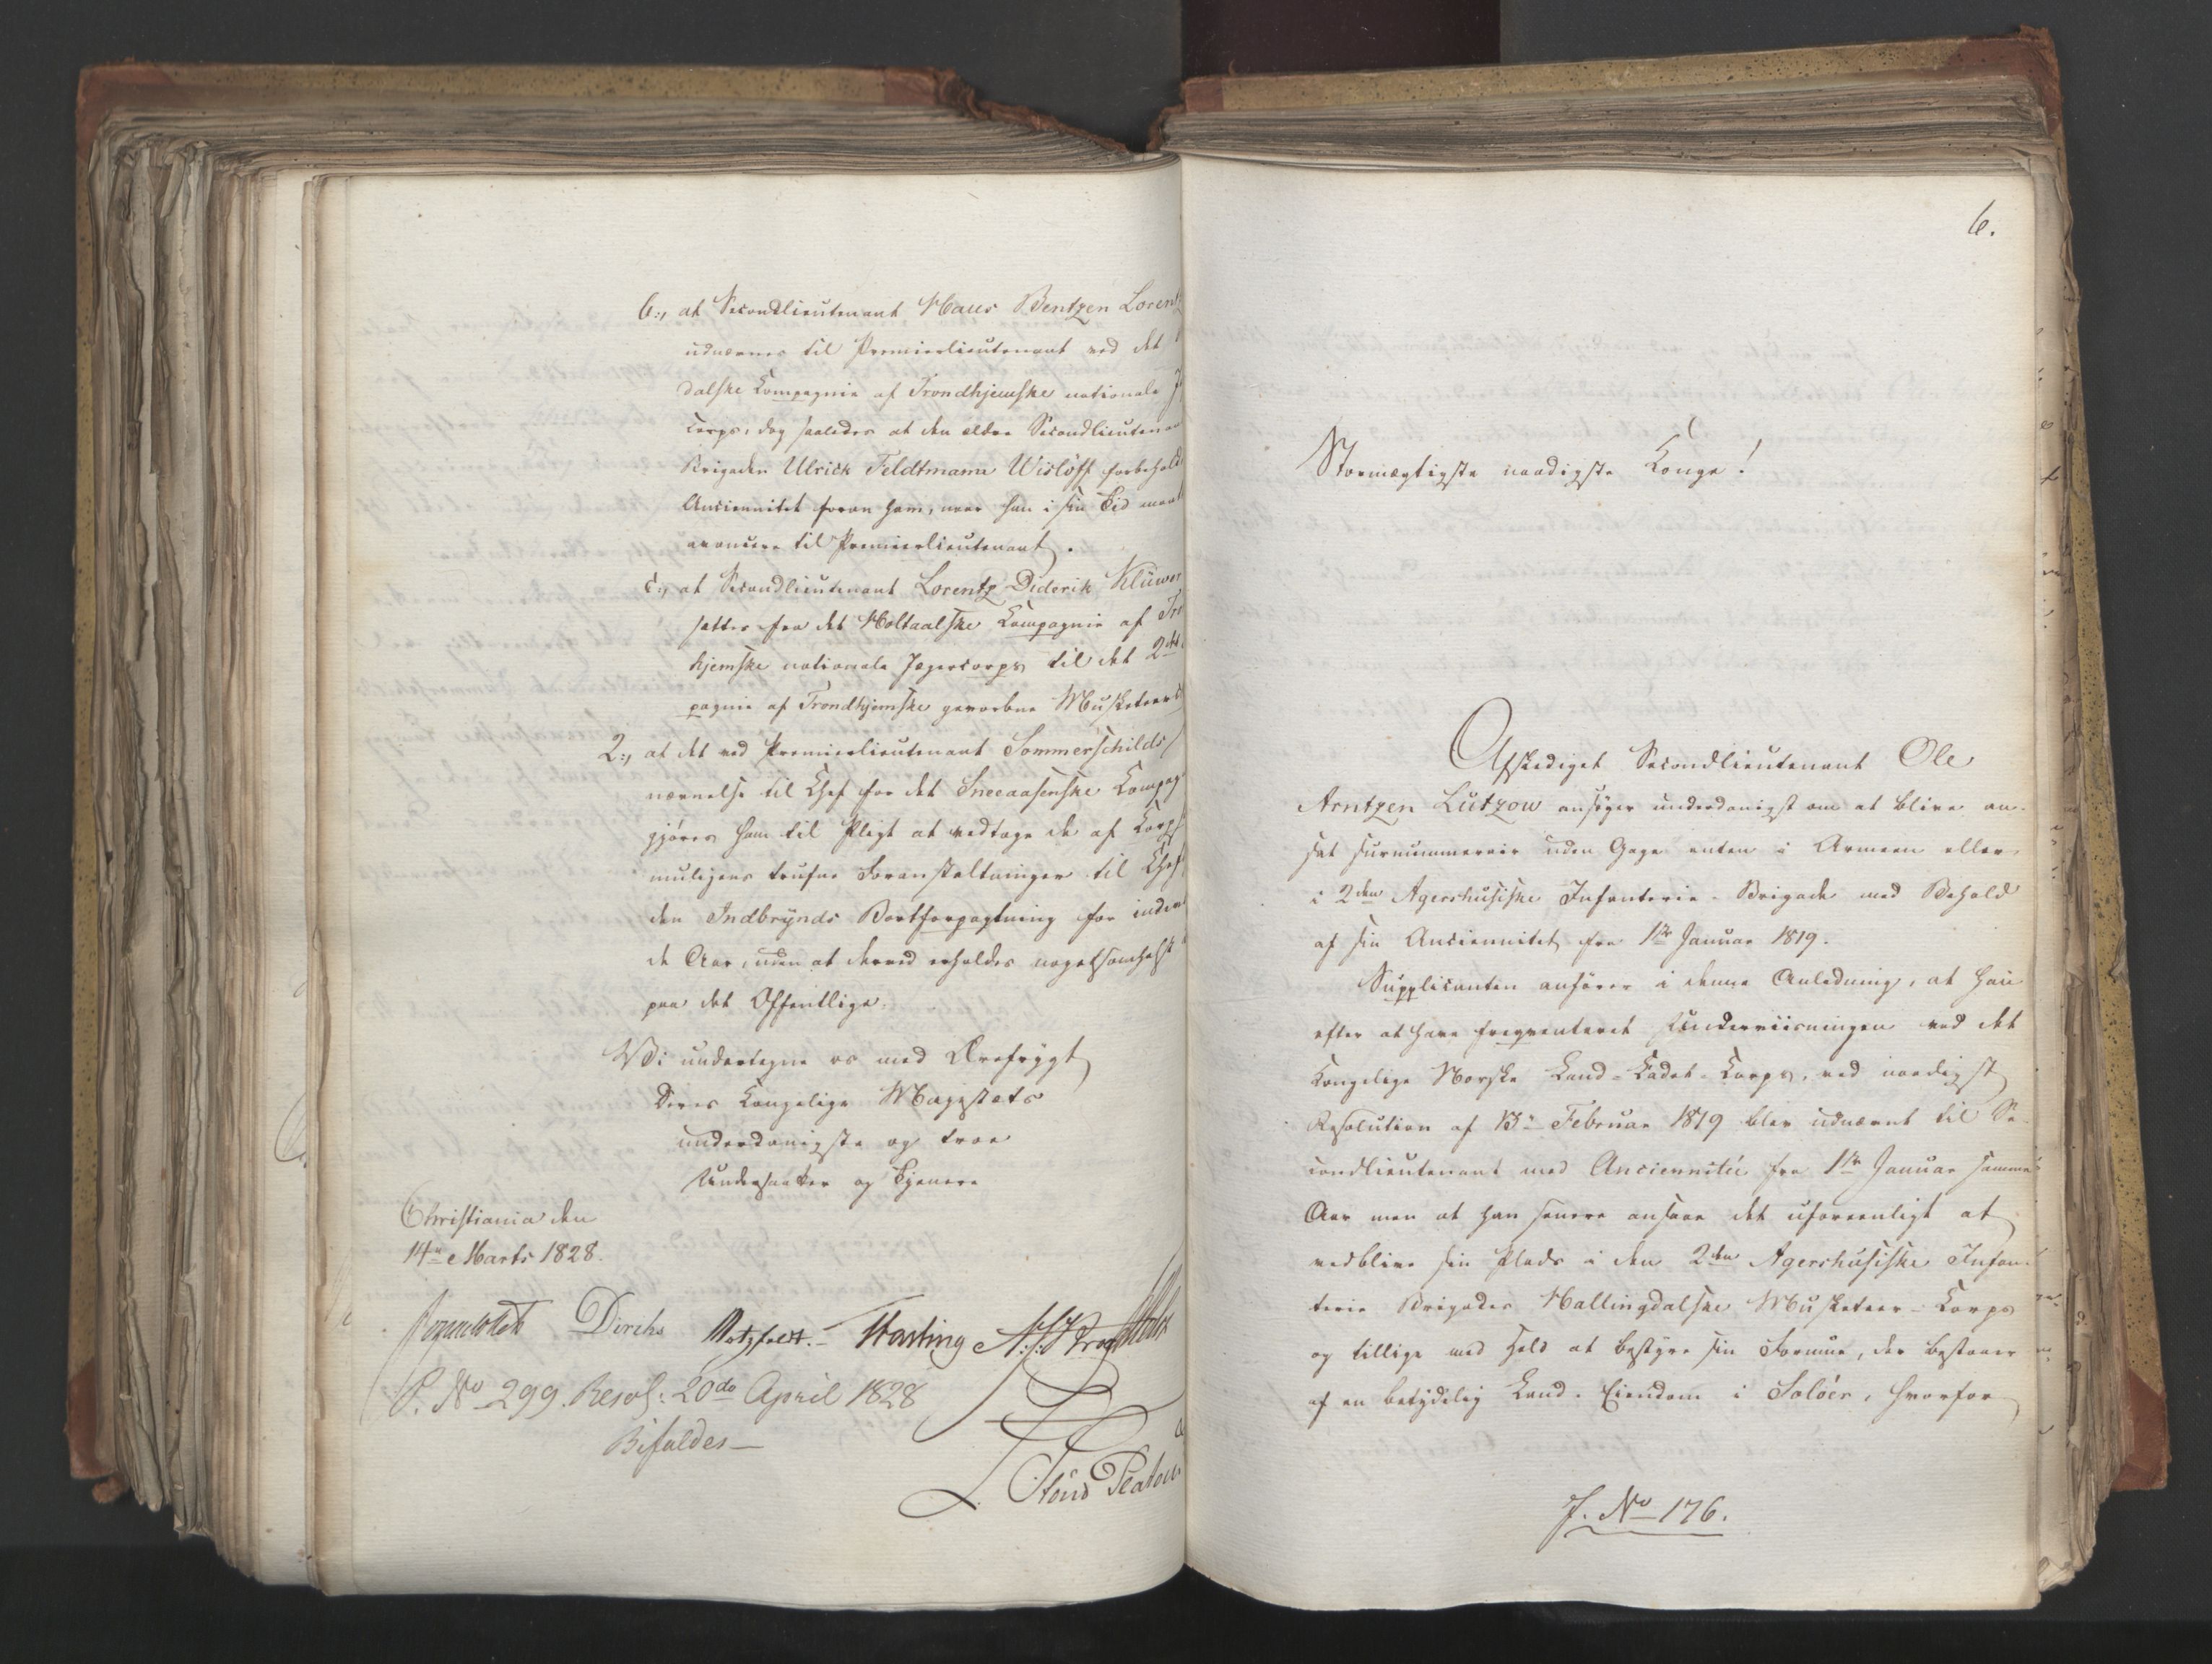 b., at Secondlieutenant Hans Bentzen Lorent
udnævnes til Premierlieutenant ved det
dalske Compagnie af Trondhjemske nationale
Corps, dog saaledes at den ældre Secondlieutenan
Brigaden Ulrich Feldtmann Wislöff forbehold
Anciennitet foran ham, naar han i sin Tid maat
avancere til Premierlieutenant.
c., at Secondlieutenant Lorentz Diderik Klüwer
sættes fra det Holtaalske Compagnie af Tro
hjemske nationale Jægercorps til det 2det
pagnie af Trondhjemske gevorbne Musketeer
2., at det ved Premierlieutenant Sommerschilds
nævnelse til Chef for det Sneaasenske Compag
gjöres ham til Pligt at vedtage de af Corps
muligens trufne Foranstaltninger til Chef
den Indbrynds Bortforpagtning for
de Aar, uden at derved erholdes nogetsomhelst
paa det Offentlige.
Vi undertegne os med Ærefrygt
Deres Kongelige Majestæts
underdanigste og troe
Undersaatter og Tjenere
Christiania den
14de Marts 1828.
Diriks Motzfeldt. Fasting
P. No 299. Resol: 20de April 1828
Bifaldes
6.
Stormægtigste naadigste Konge!
Afskediget Secondlieutenant Ole
Arntzen Lützow ansöger underdanigst om at blive an-
sat surnummerair uden Gage enten i Armeen eller
i 2den Agershusiske Infanterie-Brigade med Behold
af sin Anciennitet fra 1ste Januar 1819.
Supplicanten anförer i denne Anledning, at han
efter at have freqventeret Underviisningen ved det
Kongelige Norske Land-Cadet-Corps, ved naadigst
Resolution af 13de Februar 1819 blev udnævnt til Se-
condlieutenant med Anciennitet fra 1ste Januar samme
Aar men at han senere ansaae det uforeenligt at
vedblive sin Plads i den 2den Agershusiske Infan-
terie Brigades Hallingdalske Musketeer-Corps
og tillige med Held at bestyre sin Formue, der bestaaer
af en betydelig Land-Eiendom i Solöer, hvorfor
J. No 176.